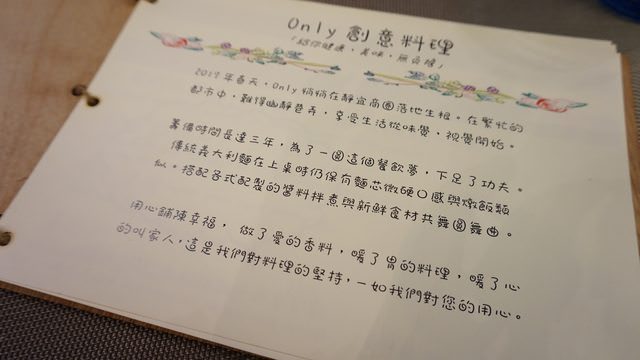 Only 創意料理
「給你健康，美味，無負擔」
2017年春天，Only悄悄在靜宜商圈落地生根。在繁忙的
都市中，難得幽靜巷弄，享受生活從味覺，視覺開始。
籌備時間長達三年，為了一圓這個餐飲夢，下足了功夫。
傳統義大利麵在上桌時仍保有麵芯微硬口感與燉飯類
似。搭配各式配製的醬料拌煮與新鮮食材共舞圓舞曲。
用心鋪陳幸福，做了愛的香料，暖了胃的料理，暖了心
的叫家人，這是我們對料理的堅持，一如我們對您的用心。